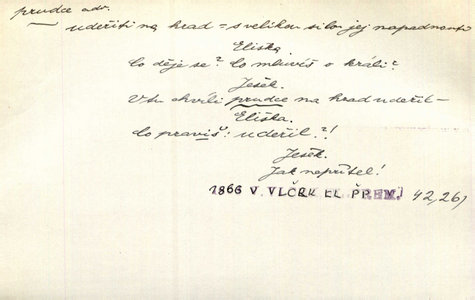 prudce adv.
udeřiti na hrad = s velikou silou jej napadnouti
Eliška.
Co děje se? Co mluvíš o králi?
Ješek.
V tu chvíli prudce na hrad udeřil –
Eliška.
Co pravíš: udeřil?!
Ješek.
Jak nepřítel!
1866 V. VLČEK EL PŘEM. 42,26,